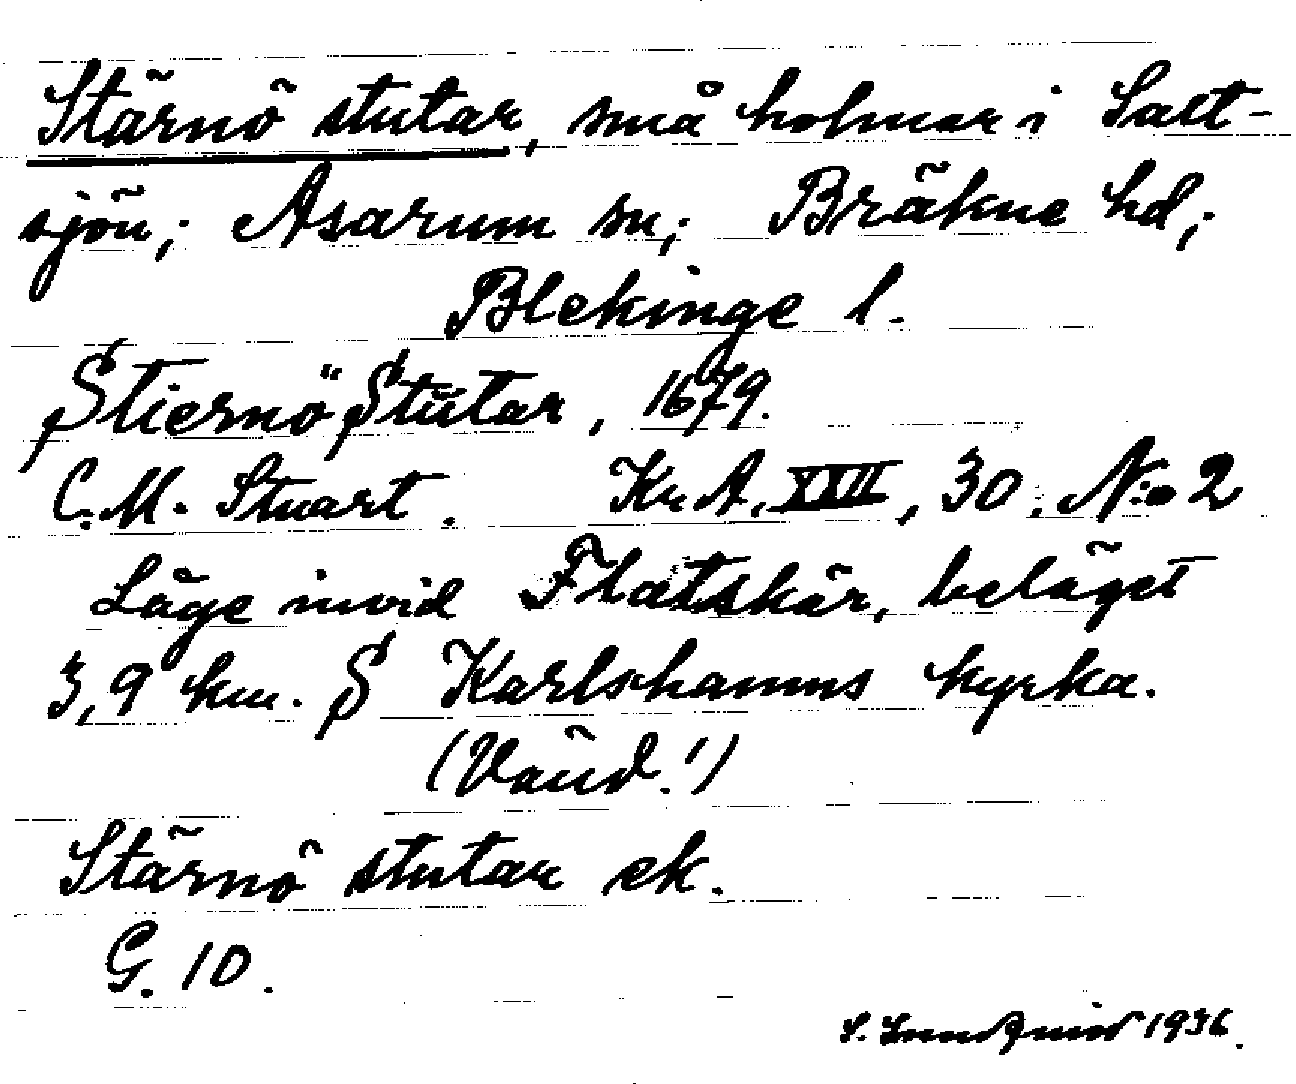 Stärnö stutar, små holmar i Salt-
sjön; Asarum sn; Bräkne hd;
Blekinge l.
Stiernö Stutar, 1679.
C.M. Stuart. Kr.A. XVII, 30. N:o 2
Läge invid Flatskär, beläget
3,9 km. S Karlshamns kyrka.
(Vänd!)
Stärnö stutar ek.
G. 10.
S. Lundqvist 1936.